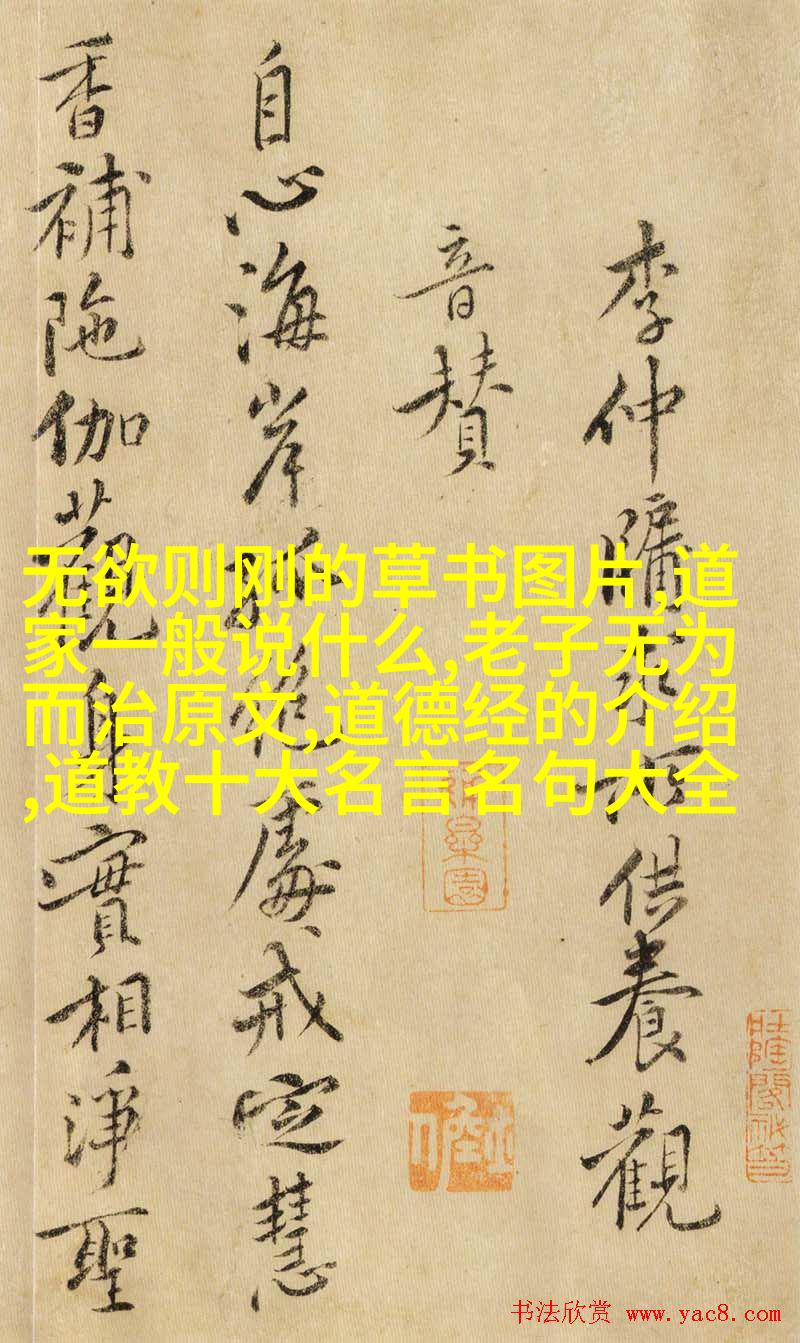 李仲牖求地供養觀
音賛
自心海岸孤絶處戒定慧
香補陁伽觀身實相淨聖
无欲则刚的草书图片,道
家一般说什么,老子无为
而治原文,道德经的介绍
,道教十大名言名句大全
书法欣赏 www.yac8.com